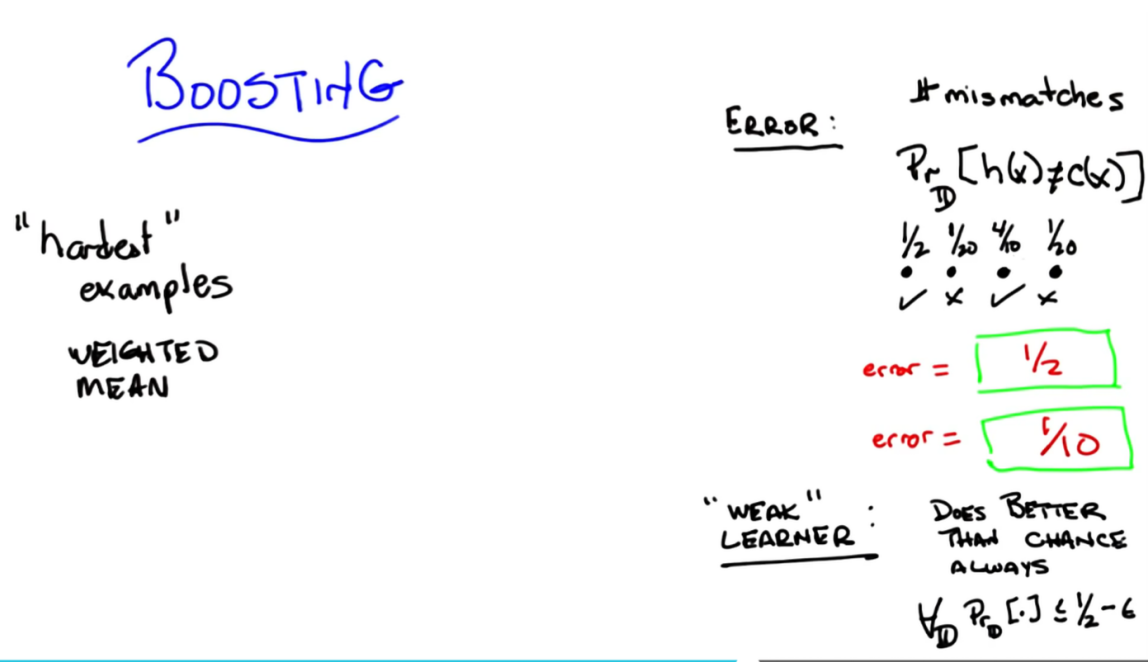 BOOSTING
"hardest"
examples
WEIGHTED
MEAN
ERROR:
#mismatches
Pr_D [h(x)≠c(x)]
1/2 1/20 4/10 1/20
• • • •
✓ x ✓ x
error = 1/2
error = 1/10
"WEAK"
LEARNER:
DOES BETTER
THAN CHANCE
ALWAYS
∀_D Pr_D [·] ≤ 1/2 - ε